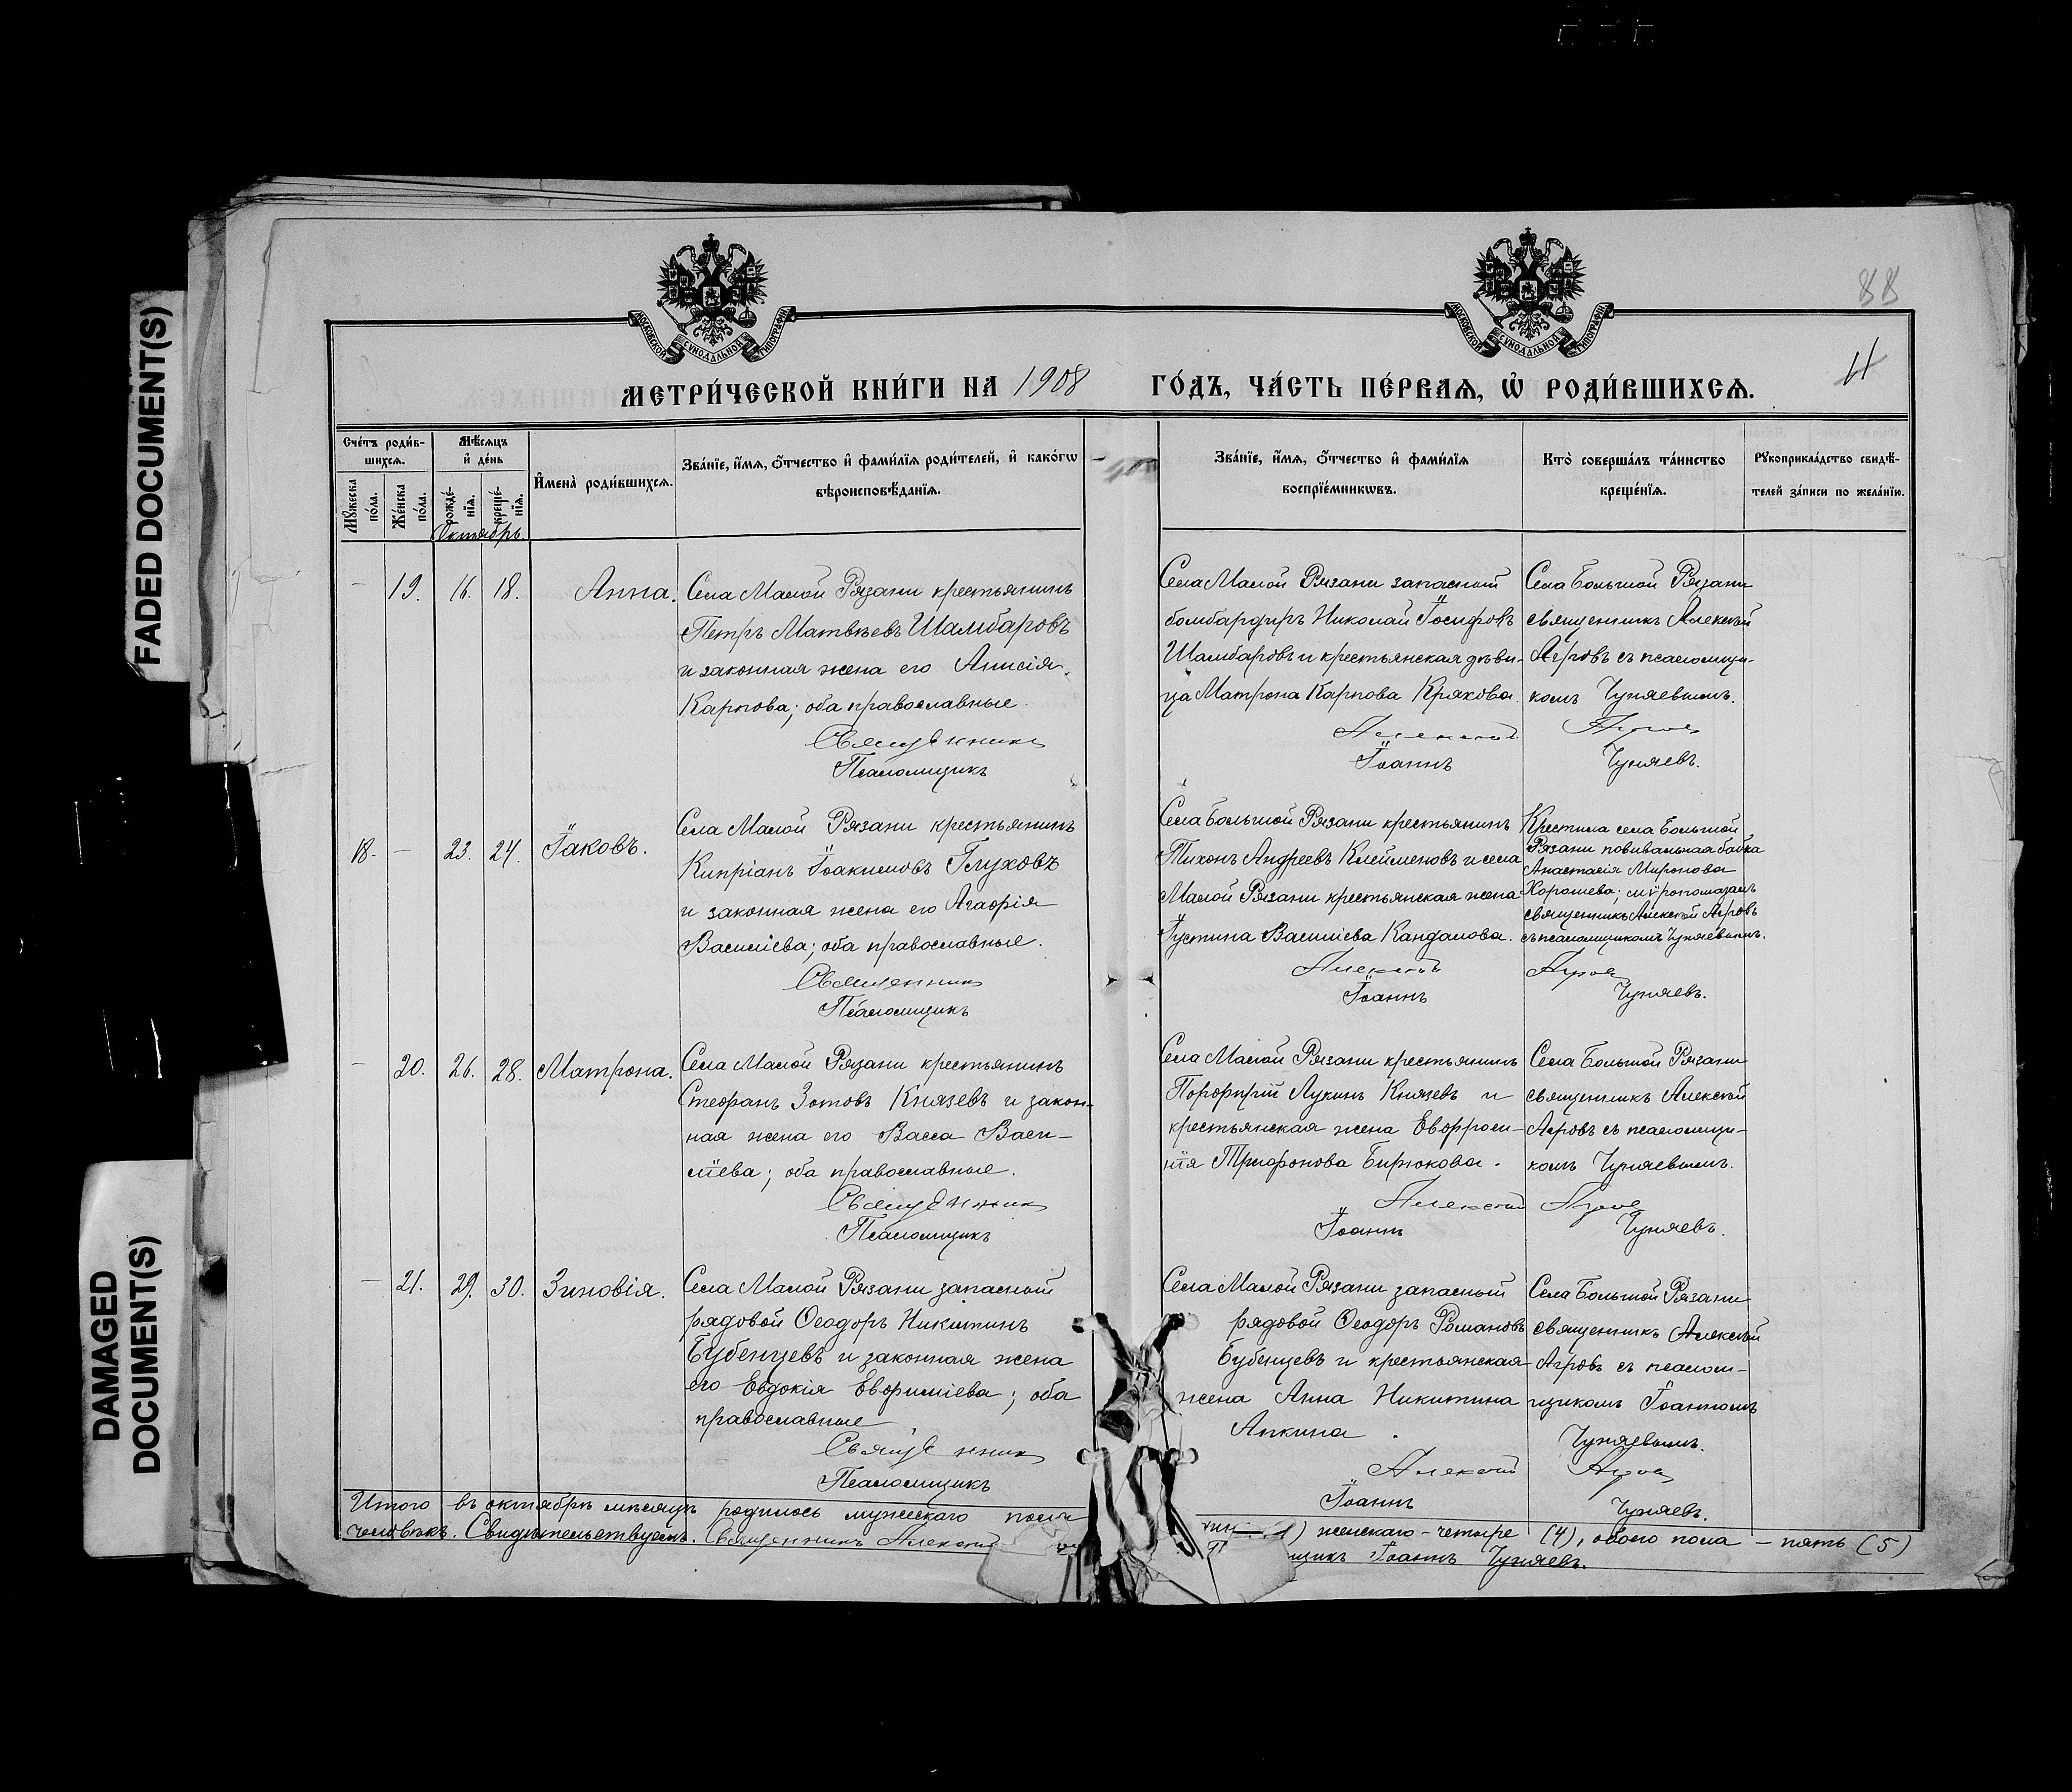 FADED DOCUMENT(S)
DAMAGED
DOCUMENT(S)
88
МОСКОВСКОЙ СѴНОДАЛЬНОЙ ТИПОГРАФІИ
МОСКОВСКОЙ СѴНОДАЛЬНОЙ ТИПОГРАФІИ
МЕТРИ́ЧЕСКОЙ КНИ́ГИ НА 1908 ГО́ДЪ, ЧА́СТЬ ПЕ́РВАѦ, Ѡ҆ РОДИ́ВШИХСѦ.
Сче́тъ роди́в-
шихсѧ.
Мꙋ́жеска
по́ла.
Же́нска
по́ла.
Мѣ́сѧцъ
и҆ де́нь
рожде́-
нїѧ.
креще́-
нїѧ.
И҆мена̀ роди́вшихсѧ.
Зва́нїе, и҆́мѧ, ѻ҆́тчество и҆ фами́лїѧ роди́телей, и҆ како́гѡ
вѣроисповѣ́данїѧ.
Зва́нїе, и҆́мѧ, ѻ҆́тчество и҆ фами́лїѧ
воспрїе́мникѡвъ.
Кто̀ соверша́лъ та́инство
креще́нїѧ.
Рꙋкоприкла́дство свидѣ́-
телей за́писи по жела́нїю.
Октябрь.
— 19. 16. 18. Анна.
Села Малой Рязани крестьянинъ
Петръ Матвѣевъ Шамбаровъ
и законная жена его Анисія
Карпова; оба православные
Священникъ
Псаломщикъ
Села Малой Рязани запасный
бомбардиръ Николай Іосифовъ
Шамбаровъ и крестьянская дѣви-
ца Матрона Карпова Крякова.
Алексій
Іоаннъ
Села Большой Рязани
священникъ Алексій
Агровъ съ псаломщи-
комъ Чуняевымъ.
Агровъ
Чуняевъ.
18. — 23. 24. Іаковъ.
Села Малой Рязани крестьянинъ
Кипріанъ Іоакимовъ Глуховъ
и законная жена его Агафія
Василіева; оба православные.
Священникъ
Псаломщикъ
Села Большой Рязани крестьянинъ
Тихонъ Андреевъ Клейменовъ и села
Малой Рязани крестьянская жена
Іустина Василіева Кандалова.
Алексій
Іоаннъ
Крестила села Большой
Рязани повивальная бабка
Анастасія Миронова
Хорошева; мѵропомазалъ
священникъ Алексій Агровъ
съ псаломщикомъ Чуняевымъ.
Агровъ
Чуняевъ.
— 20. 26. 28. Матрона.
Села Малой Рязани крестьянинъ
Стефанъ Зотовъ Князевъ и закон-
ная жена его Васса Васи-
ліева; оба православные.
Священникъ
Псаломщикъ
Села Малой Рязани крестьянинъ
Порфирій Лукинъ Князевъ и
крестьянская жена Евфроси-
нія Трифонова Бирюкова.
Алексій
Іоаннъ
Села Большой Рязани
священникъ Алексій
Агровъ съ псаломщи-
комъ Чуняевымъ.
Агровъ
Чуняевъ.
— 21. 29. 30. Зиновія.
Села Малой Рязани запасный
рядовой Ѳеодоръ Никитинъ
Бубенцевъ и законная жена
его Евдокія Евфиміева; оба
православные
Священникъ
Псаломщикъ
Села Малой Рязани запасный
рядовой Ѳеодоръ Романовъ
Бубенцевъ и крестьянская
жена Анна Никитина
Анкина.
Алексій
Іоаннъ
Села Большой Рязани
священникъ Алексій
Агровъ съ псалом-
щикомъ Іоанномъ
Чуняевымъ.
Агровъ
Чуняевъ.
Итого въ октябрѣ мѣсяцѣ родилось мужескаго пола женскаго - четыре (4), обоего пола - пять (5)
человѣкъ. Свидѣтельствуемъ. Священникъ Алексій щикъ Іоаннъ Чуняевъ.